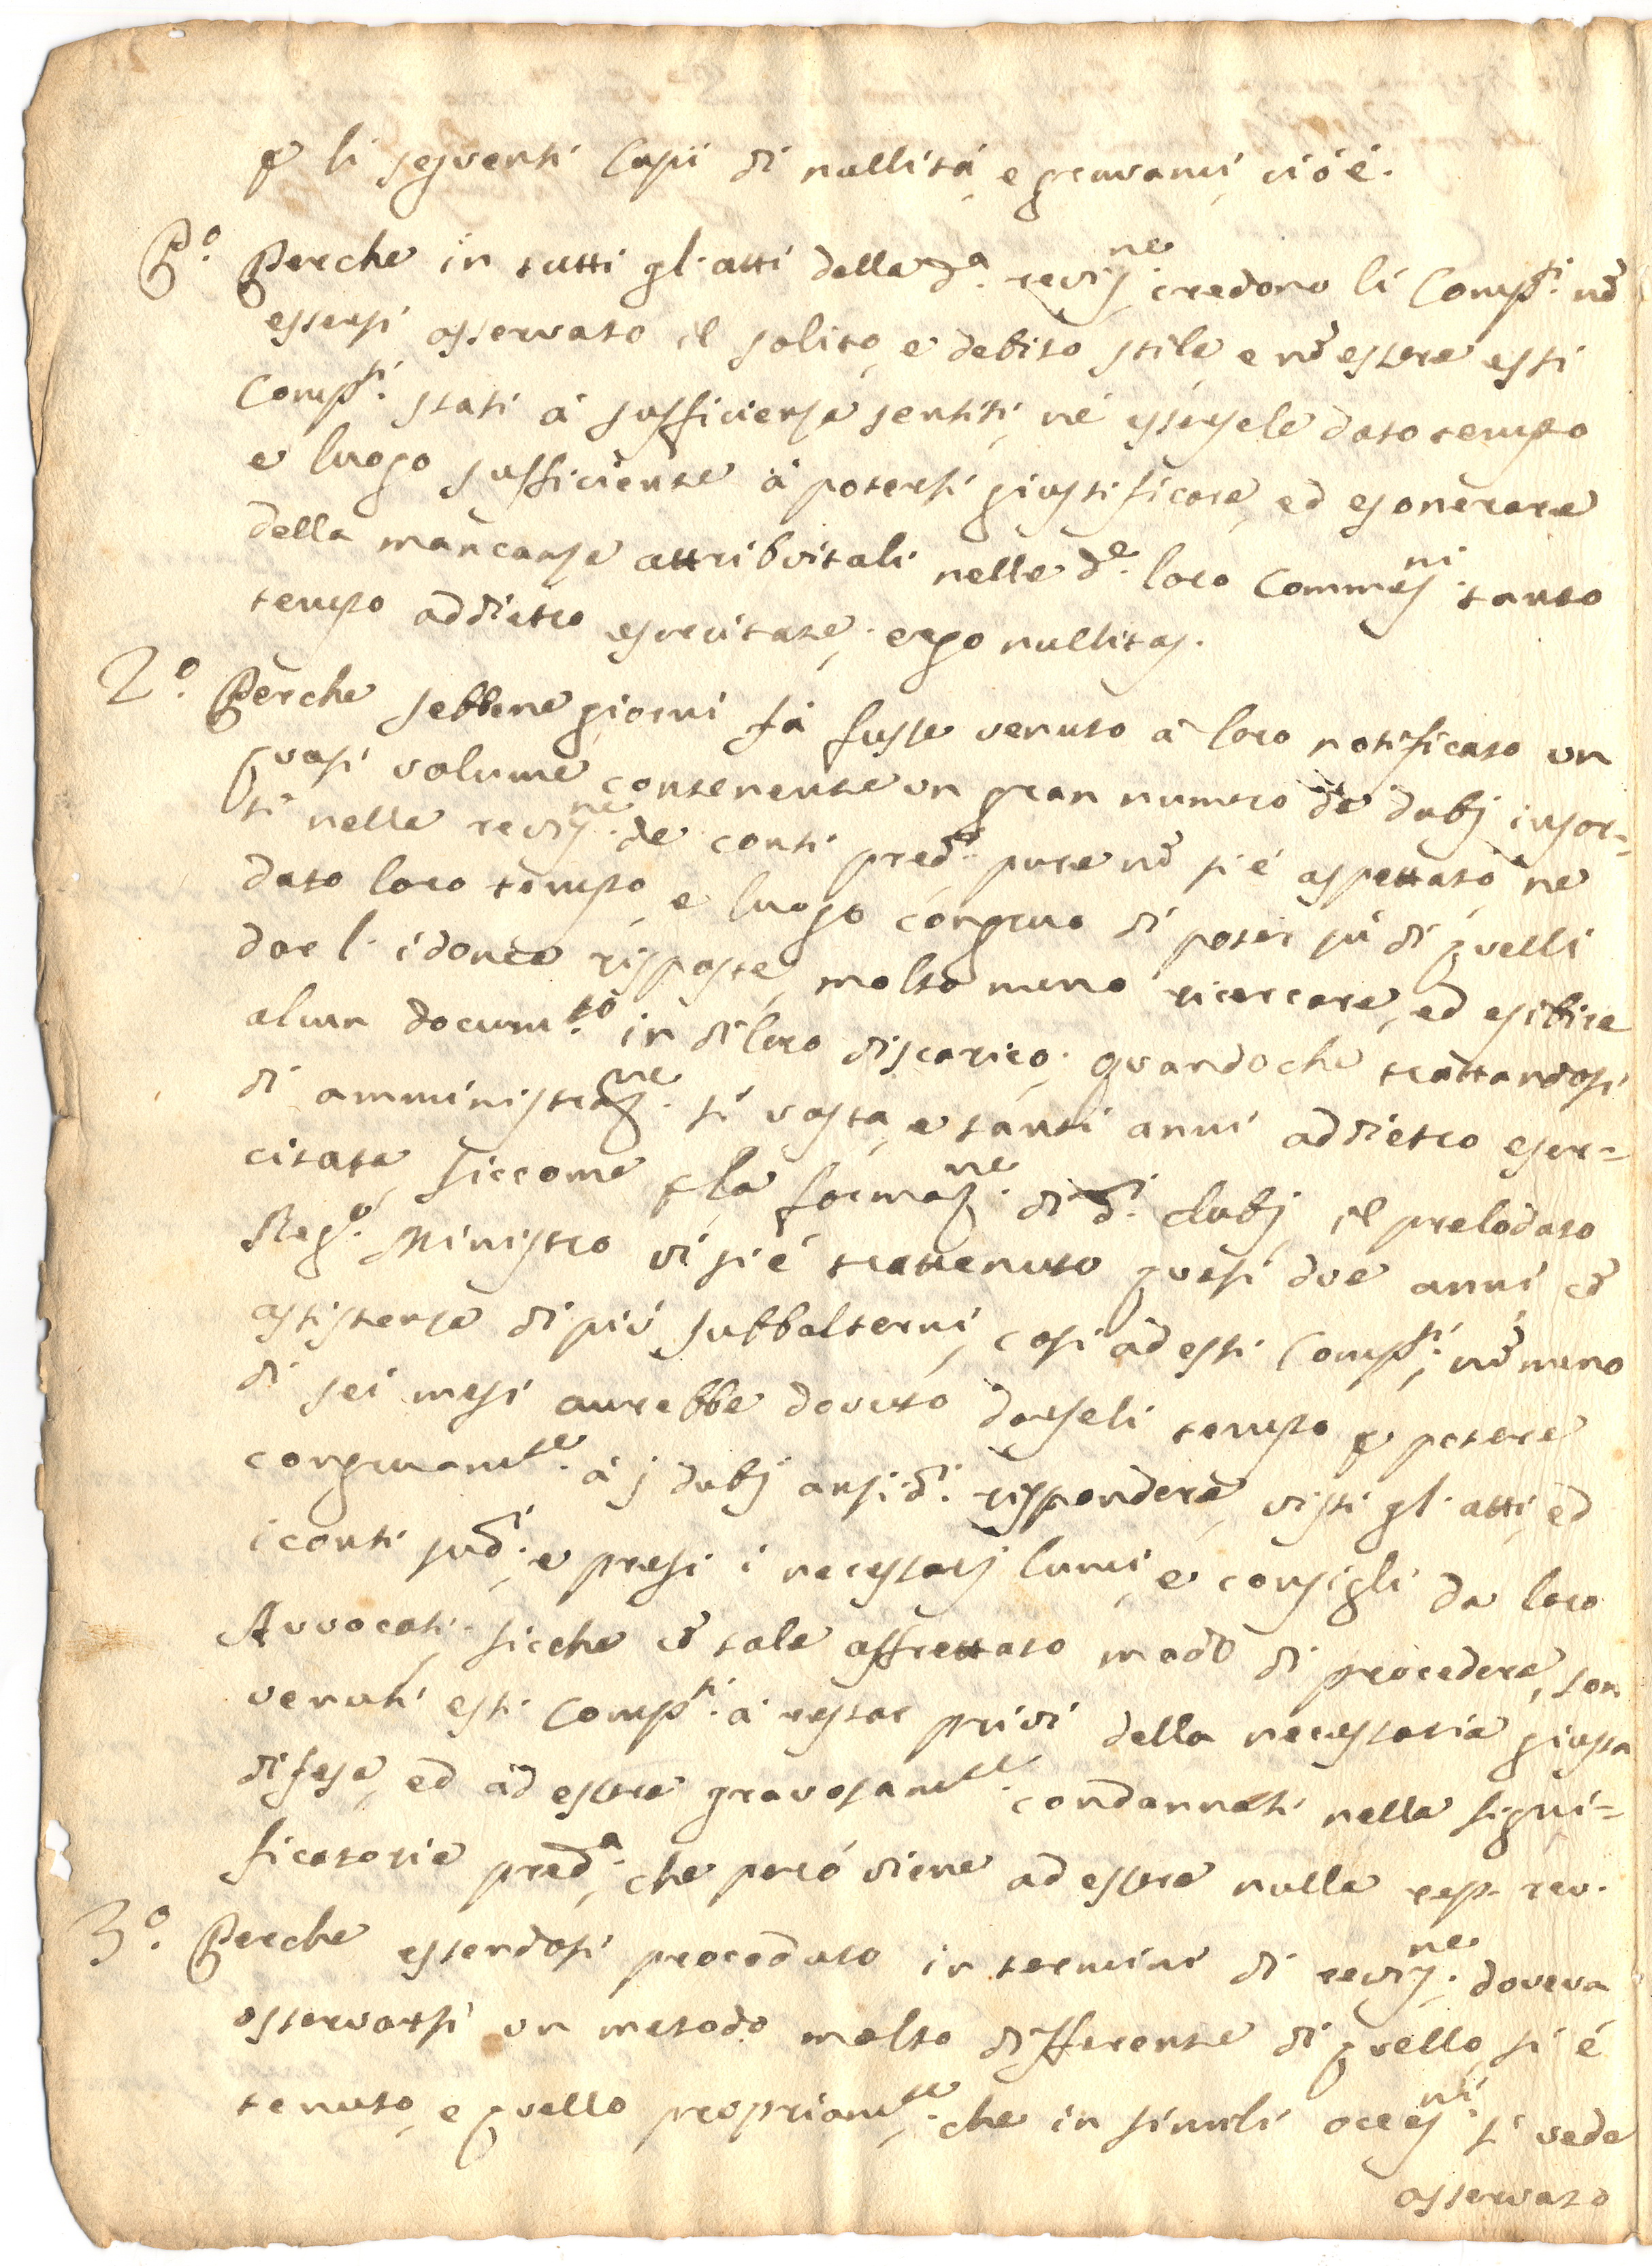 p li seguenti Capi di nullità, e gravami, cioè.
P.º Perche in tutti gl'atti della d.ª revis.ne credono li Comp.ti nõ
essersi osservato il solito, e debito stile, e nõ essere essi
Comp.ti stati à sufficienza sentiti, nè essersele dato tempo
e luogo sufficiente à potersi giustificare, ed esonerare
della mancanze attribuitali nelle d.e loro Commes.ni tanto
tempo addietro esercitate; ergo nullitas.
2.º Perche sebbene giorni fà fusse venuto à loro notificato un
quasi volume, contenente un gran numero de dubj insor=
ti nella revis.ne de conti pred.ti pure nõ si è aspettato, ne
dato loro tempo, e luogo congruo di poter sù di quelli
dar l'idonee risposte, molto meno ricercare, ed esibire
alcun docum.to in di loro discarico; quandoche trattandosi
di amministraz.ne sì vasta, e tanti anni addietro eser=
citata, siccome p la formaz.ne di d.i dubj, il prelodato
Reg.º Ministro vi si è trattenuto quasi due anni, cõ
assistenza di più subbalterni, così ad essi Comp.ti, nõ meno
di sei mesi aurebbe dovuto darseli tempo p potere
congruam.te à i dubj ansid.i rispondere, visti gl'atti, ed
i conti sud.i, e presi i necessarj lumi, e consigli da loro
Avvocati; sicche cõ tale affrettato modo di procedere, son
venuti essi Comp.ti à restar privi della necessaria giusta
difesa, ed ad essere gravosam.te condannati nella signi=
ficatoria pred.ª, che perciò viene ad essere nulla resp. rev.
3.º Perche essendosi proceduto in termini di revis.ne, doveva
osservarsi un metodo molto differente di quello si è
tenuto, e quello propriam.te, che in simili occas.ni si vede
osservato